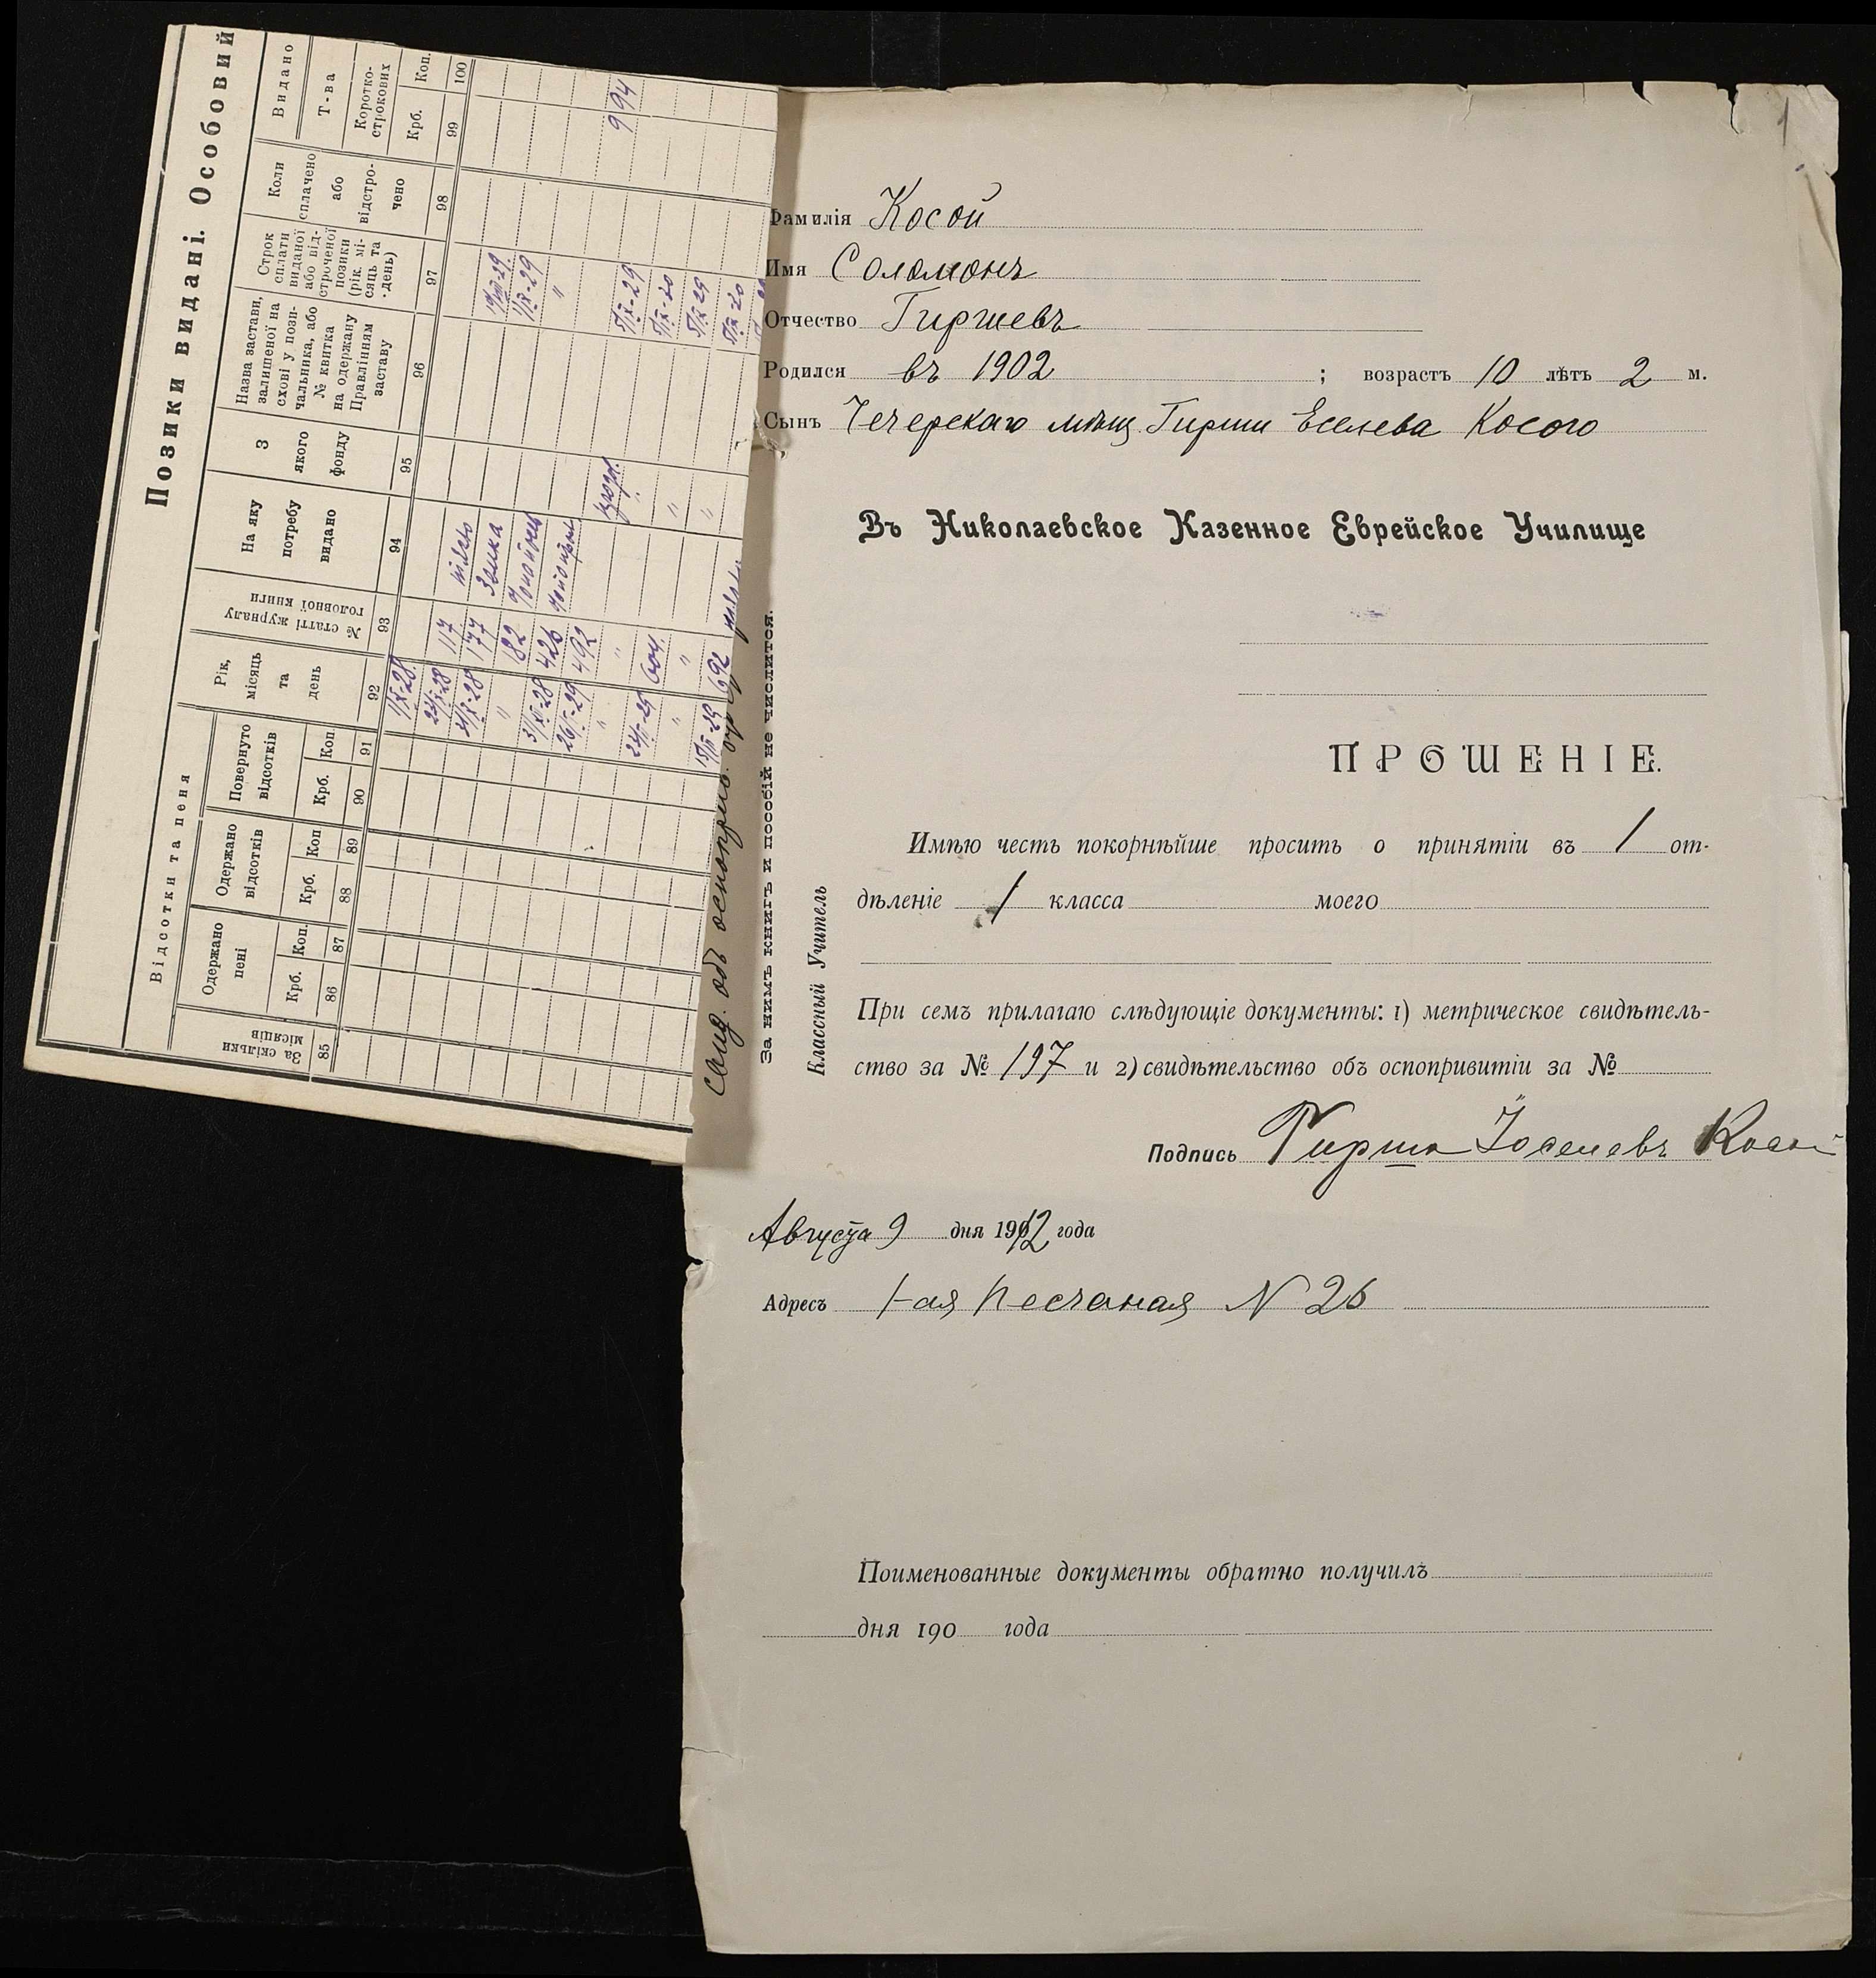 Позики видані. Особовий
Відсотки та пеня
За скільки місяців
Одержано пені
Одержано відсотків
Повернуто відсотків
Крб. Коп. Крб. Коп Крб. Коп.
Рік, місяць та день
№ статті журналу головної книги
На яку потребу видано
З якого фонду
Назва застави, залишеної на схові у позичальника, або № квитка на одержану Правлінням заставу
Строк сплати виданої або відстроченої позики (рік. місяць та день)
Коли сплачено або відстрочено
Видано
Т-ва
Коротко-строкових
Крб. Коп.
85 86 87 88 89 90 91 92 93 94 95 96 97 98 99 100
117
177
182
426
492
604
692
994
Фамилія Косой
Имя Соломонъ
Отчество Гиршевъ
Родился въ 1902 ; возрастъ 10 лѣтъ 2 м.
Сынъ Чечерскаго мѣщ. Гирши Еселева Косого
Въ Николаевское Казенное Еврейское Училище
ПРОШЕНІЕ.
Имѣю честь покорнѣйше просить о принятіи въ 1 от-
дѣленіе 1 класса моего
При семъ прилагаю слѣдующіе документы: 1) метрическое свидѣтель-
ство за № 197 и 2) свидѣтельство объ оспопривитіи за №
Подпись Гирша Іоселевъ Косой
Августа 9 дня 1912 года
Адресъ 1-ая Песчаная N 26
Поименованные документы обратно получилъ
дня 190 года
За нимъ книгъ и пособій не числится.
Классный Учитель
Свид. объ оспоприв.